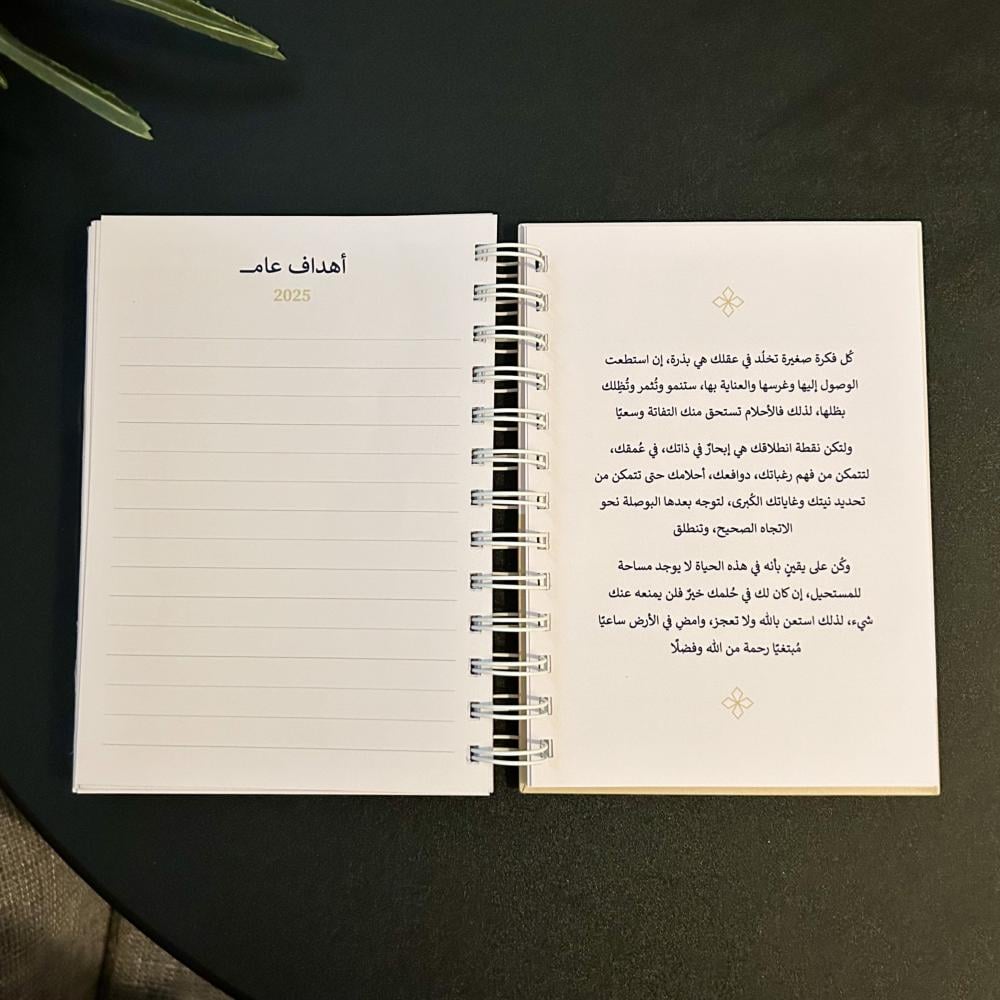 كُل فكرة صغيرة تخلُد في عقلك هي بذرة، إن استطعت
الوصول إليها وغرسها والعناية بها، ستنمو وتُثمر وتُظِلك
بظلها، لذلك فالأحلام تستحق منك التفاتة وسعيًا
ولتكن نقطة انطلاقك هي إبحارٌ في ذاتك، في عُمقك،
لتتمكن من فهم رغباتك، دوافعك، أحلامك حتى تتمكن من
تحديد نيتك وغاياتك الكُبرى، لتوجه بعدها البوصلة نحو
الاتجاه الصحيح، وتنطلق
وكُن على يقينٍ بأنه في هذه الحياة لا يوجد مساحة
للمستحيل، إن كان لك في حُلمك خيرٌ فلن يمنعه عنك
شيء، لذلك استعن بالله ولا تعجز، وامضِ في الأرض ساعيًا
مُبتغيًا رحمة من الله وفضلًا
أهداف عامـ
2025